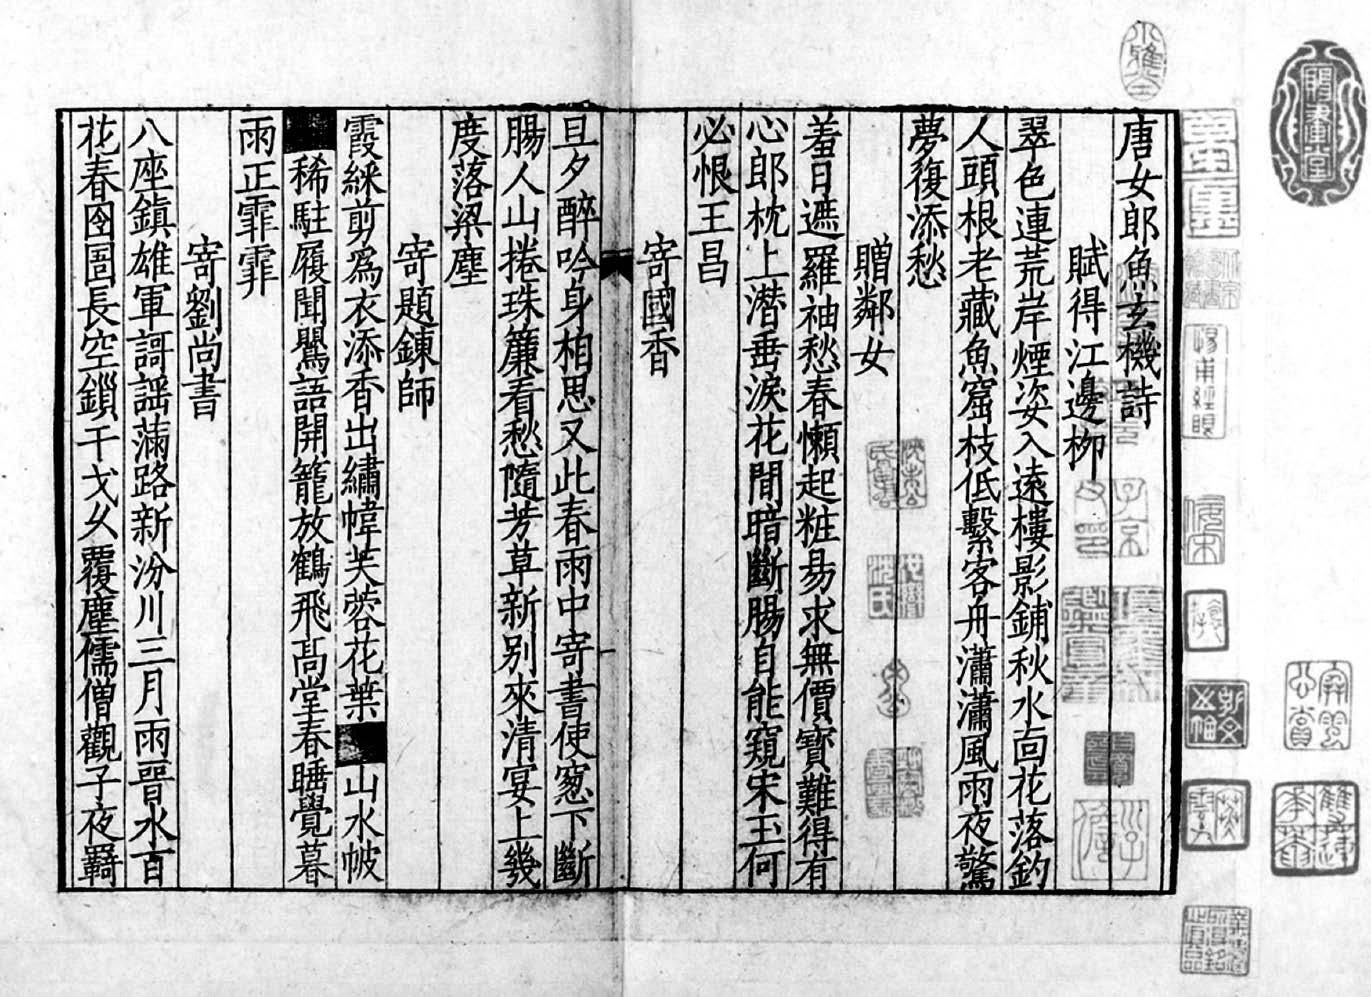 唐女郎魚玄機詩
賦得江邊栁
翠色連荒岸煙姿入遠樓影鋪秋水面花落釣
人頭根老藏魚窟枝低繫客舟瀟瀟風雨夜驚
夢復添愁
贈鄰女
羞日遮羅袖愁春懶起粧昜求無價寶難得有
心郎枕上潜垂淚花間暗斷腸自能窺宋玉何
必恨王昌
寄國香
旦夕醉吟身相思又此春雨中寄書使窓下斷
腸人山捲珠簾看愁隨芳草新別來清宴上幾
度落梁塵
寄題鍊師
霞綵剪爲衣添香出繡幃芙蓉花葉山水帔
稀駐履聞鸎語開籠放鶴飛髙堂春睡覺暮
雨正霏霏
寄劉尚書
八座鎮雄軍謌謡滿路新汾川三月雨晉水百
花春囹圄長空鏁干戈乆覆塵儒僧觀子夜羇